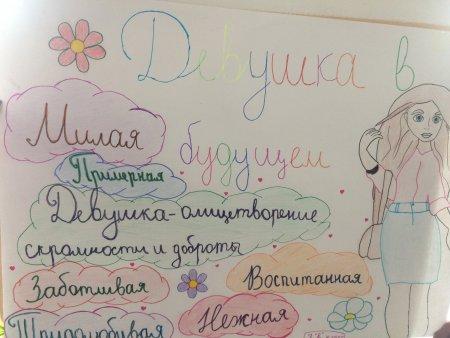 Девушка в
будущем
Милая
Примерная
Девушка - олицетворение
скромности и доброты
Заботливая
Воспитанная
Нежная
Трудолюбивая